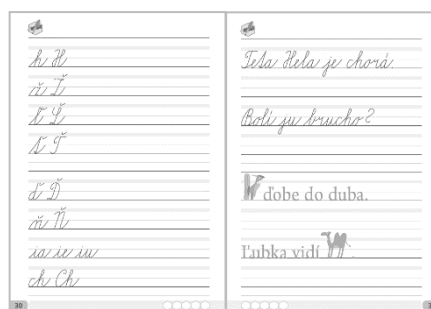 h H
ľ Ľ
ť Ť
ď Ď
ň Ň
ia ie iu
ch Ch
30
Teta Hela je chorá.
Bolí ju brucho?
ďobe do duba.
Ľubka vidí .